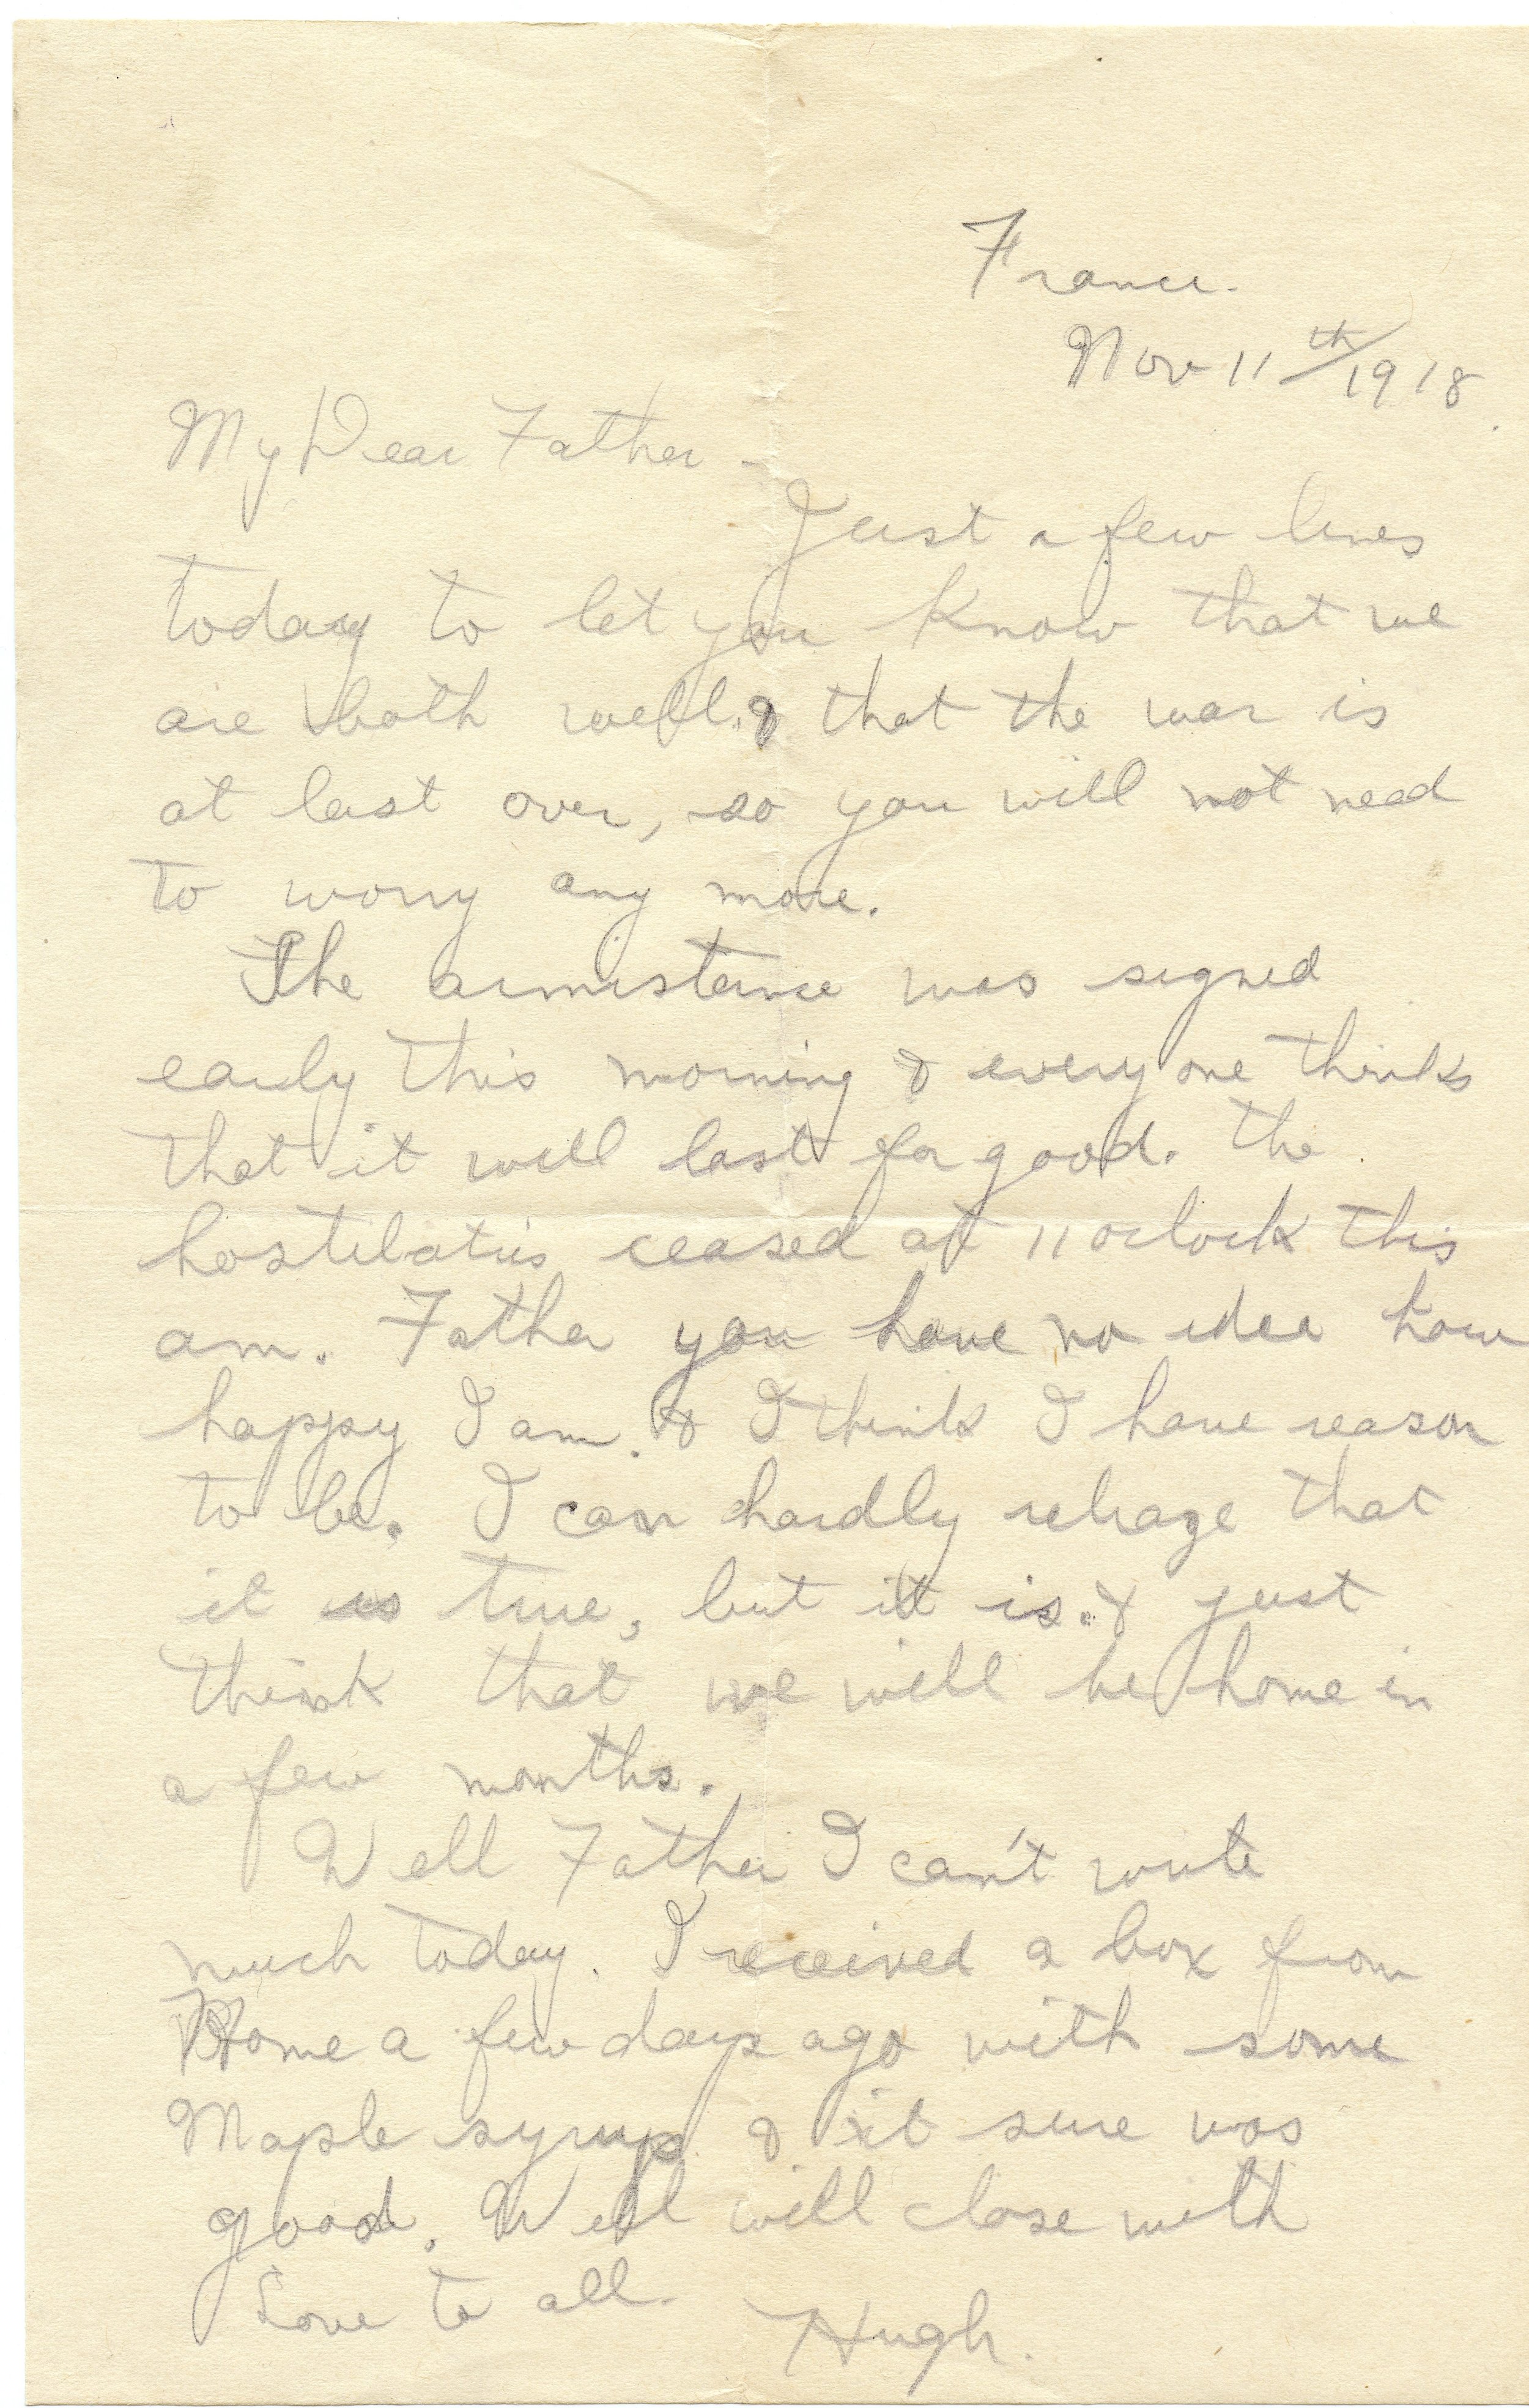 France.
Nov 11th/1918.
My Dear Father -
Just a few lines
today to let you know that we
are both well. & that the war is
at last over, so you will not need
to worry any more.
The armistance was signed
early this morning & every one thinks
that it will last for good. The
hostilaties ceased at 11 oclock this
am. Father you have no idea how
happy I am. & I think I have reason
to be. I can hardly relaize that
it is true, but it is. & just
think that we will be home in
a few months.
Well Father I can't write
much today. I received a box from
Home a few days ago with some
Maple syrup. & it sure was
good. Well will close with
Love to all.
Hugh.